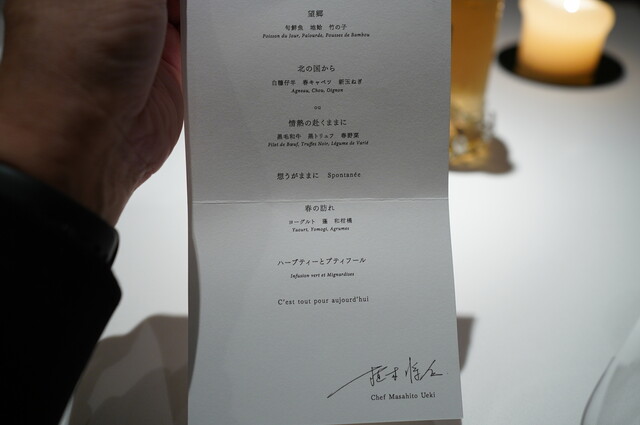 望郷
旬鮮魚　地蛤　竹の子
Poisson du Jour, Palourde, Pousses de Bambou
北の国から
白糠仔羊　春キャベツ　新玉ねぎ
Agneau, Chou, Oignon
ou
情熱の赴くままに
黒毛和牛　黒トリュフ　春野菜
Filet de Bœuf, Truffes Noir, Légume de Varié
想うがままに　Spontanée
春の訪れ
ヨーグルト　蓬　和柑橘
Yaourt, Yomogi, Agrumes
ハーブティーとプティフール
Infusion vert et Mignardises
C'est tout pour aujourd'hui
植木将仁
Chef Masahito Ueki